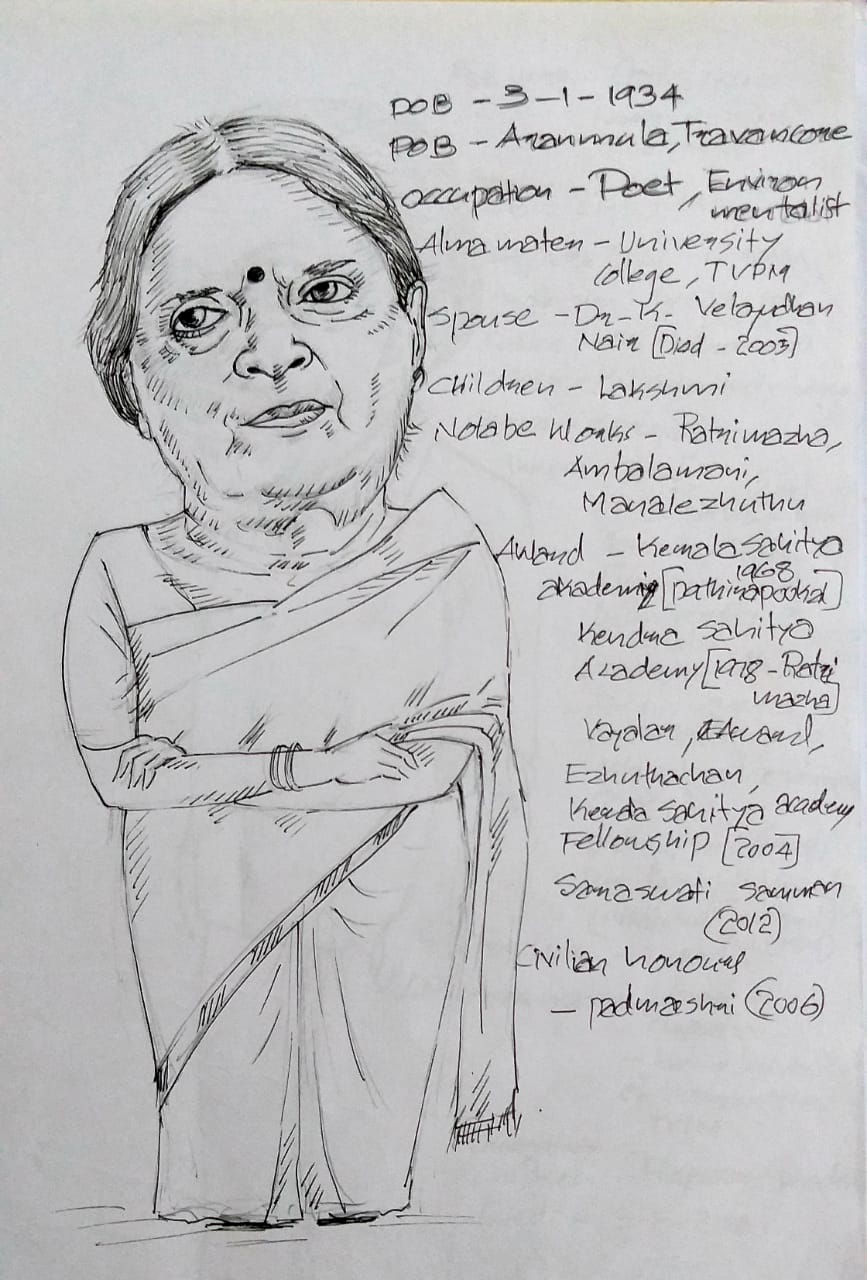 DOB - 3-1-1934
POB - Aranmula, Travancore
occupation - Poet, Environ
mentalist
Alma mater - University
College, TVPM
Spouse - Dr. K. Velayudhan
Nair [Died - 2003]
Children - Lakshmi
Notabe Works - Ratrimazha,
Ambalamani,
Manalezhuthu
Award - Kerala Sahitya
1968
akademy [pathirapookal]
Kendra Sahitya
Academy [1978 - Ratri
mazha]
Vayalar, Award,
Ezhuthachan,
Kerala Sahitya academy
Fellowship [2004]
Saraswati samman
(2012)
Civilian honours
- padmashri (2006)